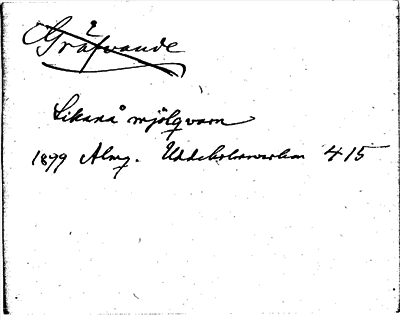 Gräfvande
Likanå mjölqvarn
1899 Almq. Uddeholmsverken 415